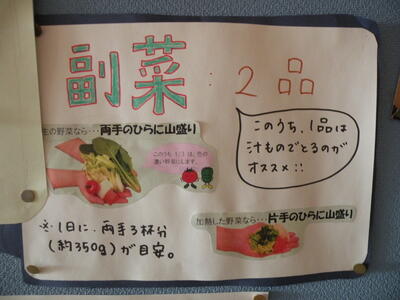 副菜:2品
生の野菜なら・・・両手のひらに山盛り
このうち1/3は、色の
濃い野菜にします。
このうち、1品は
汁ものでとるのが
オススメ::
※1日に、両手3杯分
(約350g)が目安。
加熱した野菜なら・・・片手のひらに山盛り